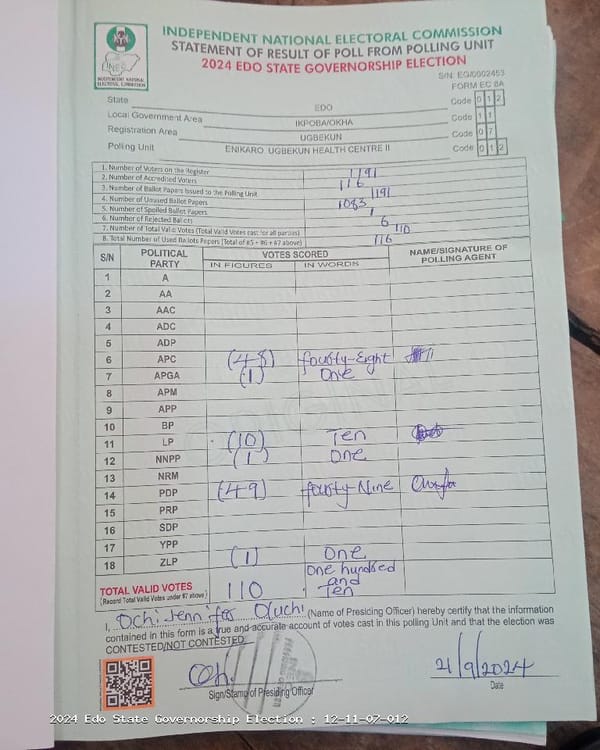 INDEPENDENT NATIONAL ELECTORAL COMMISSION
STATEMENT OF RESULT OF POLL FROM POLLING UNIT
2024 EDO STATE GOVERNORSHIP ELECTION
S/N: EG/0002453
FORM EC 8A
INEC
INDEPENDENT NATIONAL ELECTORAL COMMISSION
State EDO Code 0 1 2
Local Government Area IKPOBA/OKHA Code 1 1
Registration Area UGBEKUN Code 0 7
Polling Unit ENIKARO UGBEKUN HEALTH CENTRE II Code 0 1 2
1. Number of Voters on the Register 1191
2. Number of Accredited Voters 116
3. Number of Ballot Papers Issued to the Polling Unit 1191
4. Number of Unused Ballot Papers 1083
5. Number of Spoiled Ballot Papers 1
6. Number of Rejected Ballots 6
7. Number of Total Valid Votes (Total Valid Votes cast for all parties) 110
8. Total Number of Used Ballots Papers (Total of #5 + #6 + #7 above) 116
S/N POLITICAL PARTY VOTES SCORED NAME/SIGNATURE OF POLLING AGENT
IN FIGURES IN WORDS
1 A
2 AA
3 AAC
4 ADC
5 ADP
6 APC (48) fourty-Eight
7 APGA (1) One
8 APM
9 APP
10 BP
11 LP (10) Ten
12 NNPP (1) One
13 NRM
14 PDP (49) fourty-Nine
15 PRP
16 SDP
17 YPP
18 ZLP (1) One
TOTAL VALID VOTES 110 One hundred and Ten
(Record Total Valid Votes under #7 above)
I, Ochi Jennifer Oluchi (Name of Presiding Officer) hereby certify that the information
contained in this form is a true and accurate account of votes cast in this polling Unit and that the election was
CONTESTED/NOT CONTESTED.
21/9/2024
Sign/Stamp of Presiding Officer Date
2024 Edo State Governorship Election : 12-11-07-012